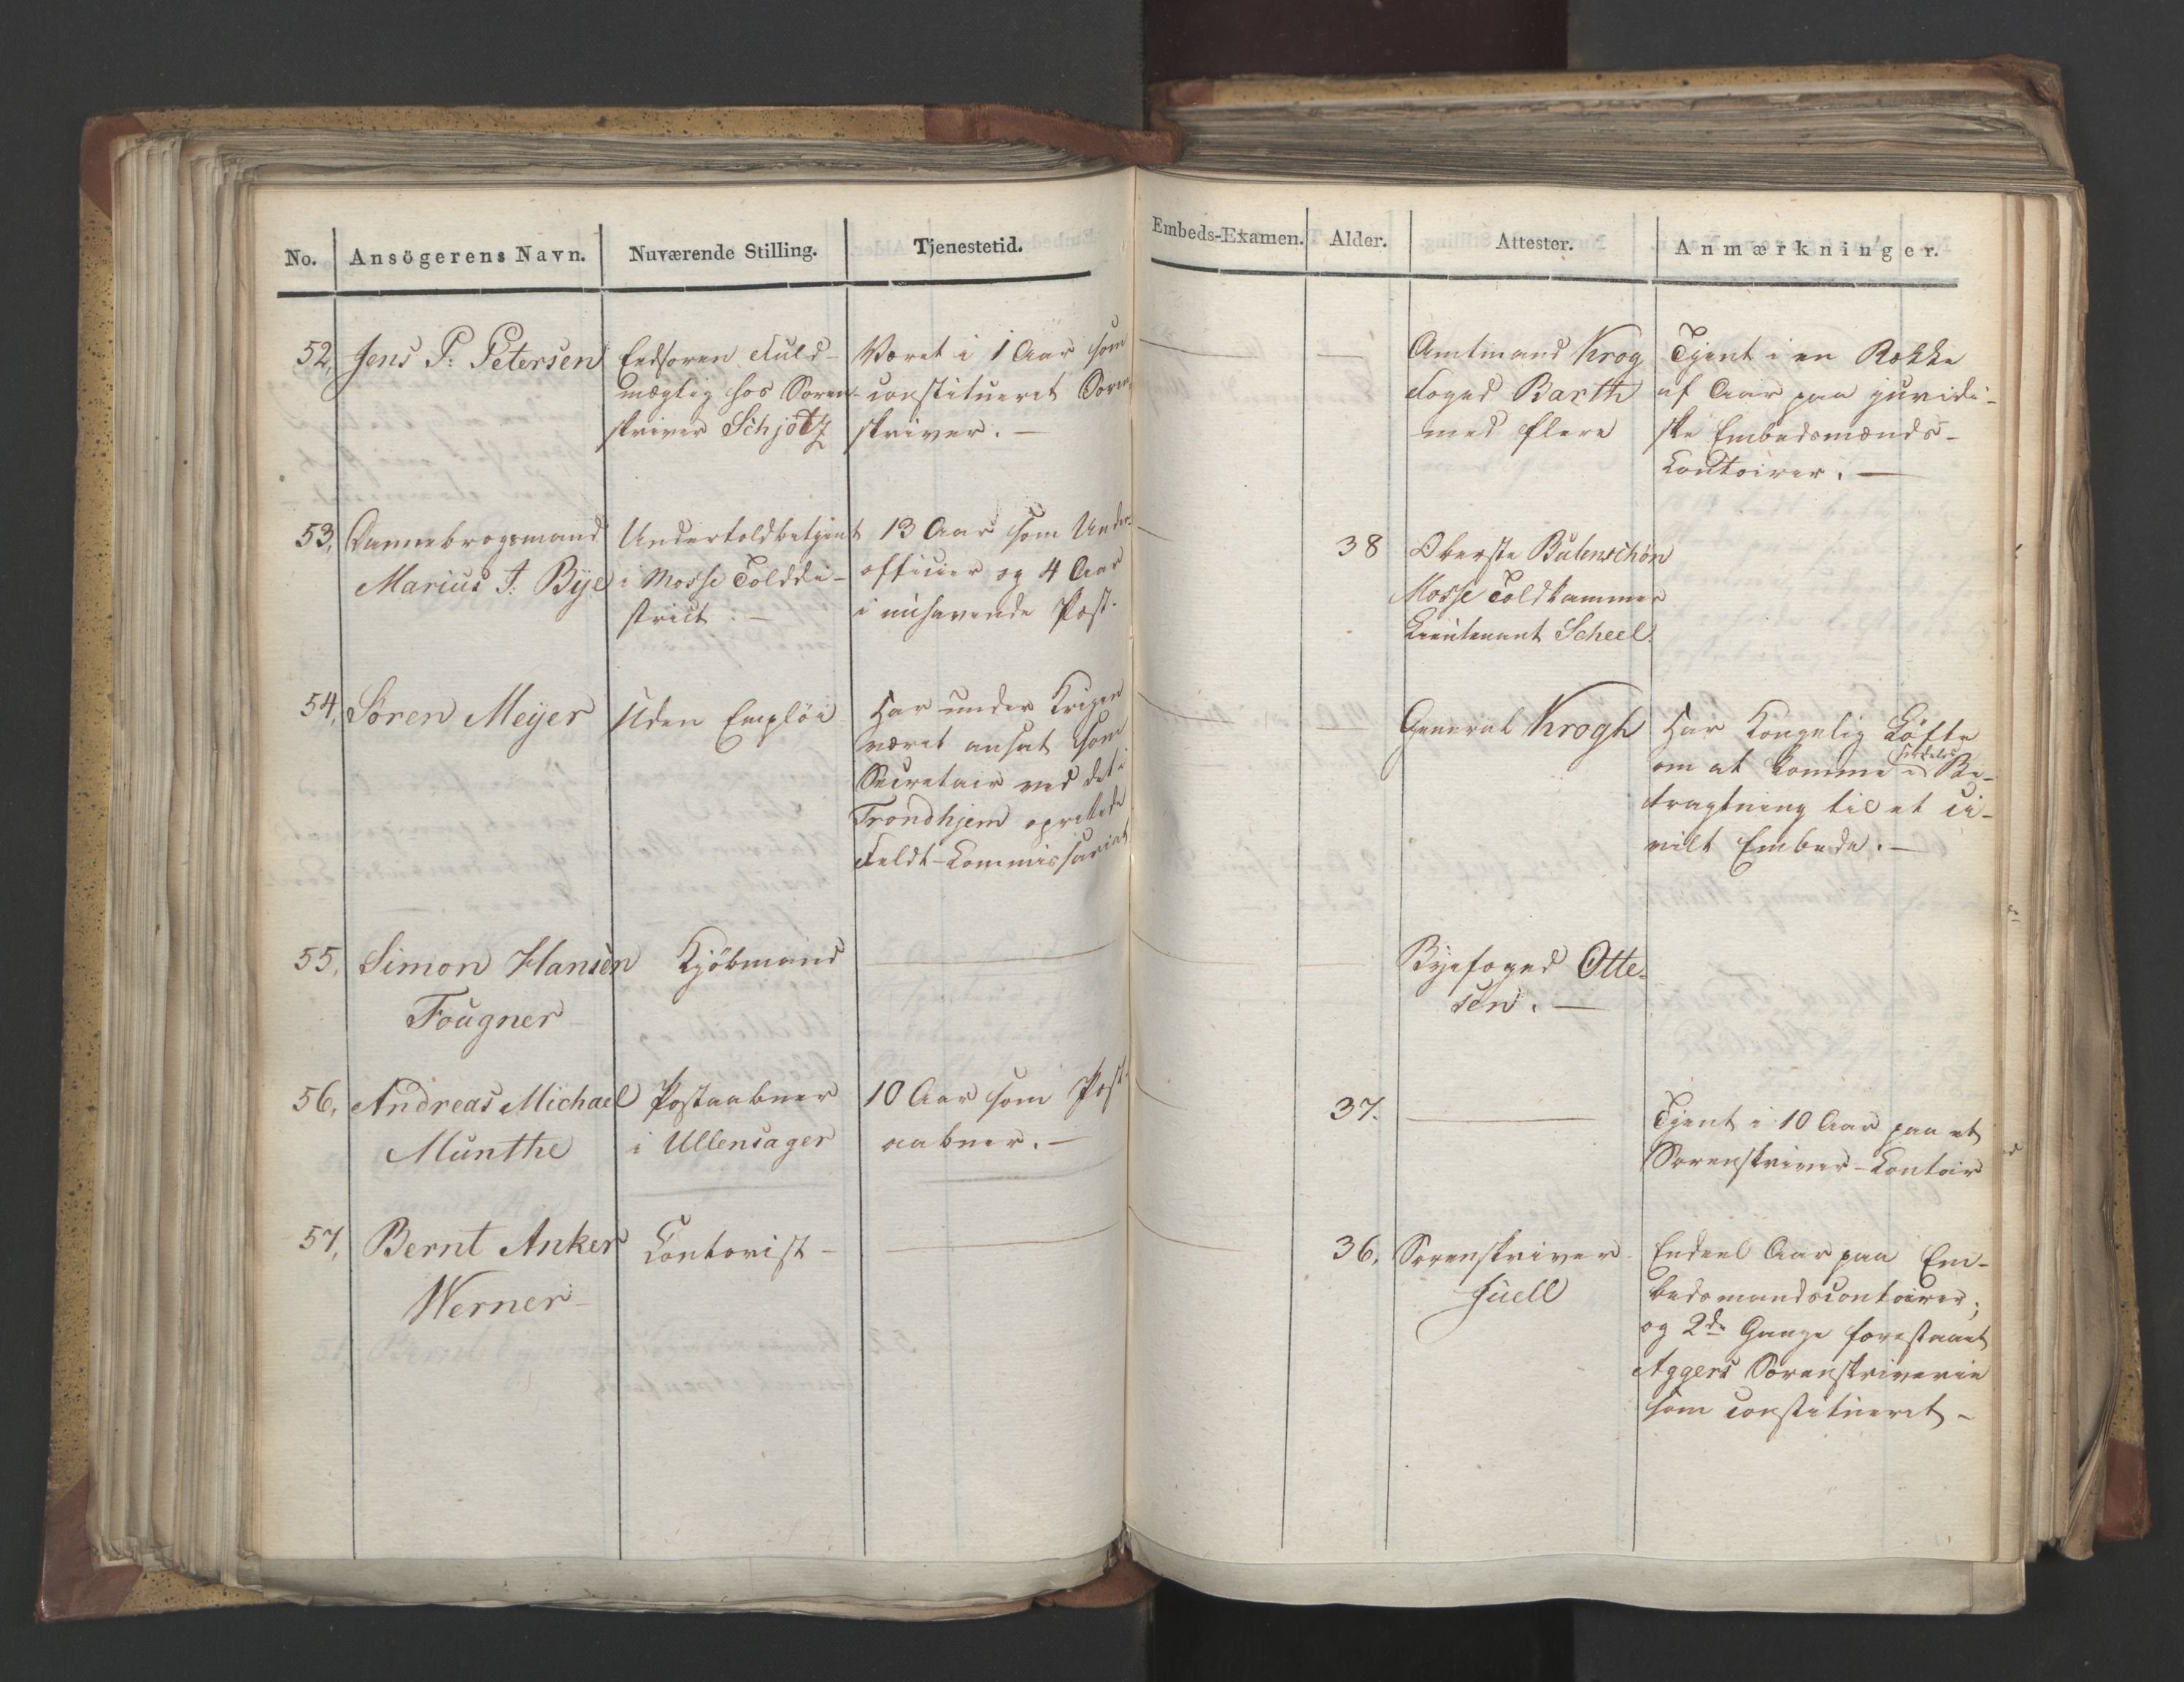 No. Ansögerens Navn. Nuværende Stilling. Tjenestetid. Embeds-Examen. Alder. Attester. Anmærkninger.
52, Jens P: Petersen
Eedsoren Fuld-
mægtig hos Soren-
skriver Schjötz
Været i 1 Aar som
constitueret Soren
skriver. —
—
—
Amtmand Krog
Foged Barth
med flere
Tjent i en Række
af Aar paa juridi-
ske Embedsmænds-
Contoirer. —
53, Dannebrogsmand
Marius F: Bye
Undertoldbetjent
i Mosse Tolddi-
strict. —
13 Aar som Under-
officier og 4 Aar
i nuhavende Post.
—
38
Oberste Bülenschön
Mosse Toldkammer
Lieutenant Scheel.
54, Sören Meyer
Uden Emplöi
Har under Krigen
været ansat som
Secretair ved det i
Trondhjem oprettede
Feldt-Commissariat
—
—
General Krogh
Har Kongelig Löfte
om at komme i særdeles Be-
tragtning til et ci-
vilt Embede. —
55, Simon Hansen
Fougner
Kjöbmand
—
—
Byefoged Otte-
sen. —
56, Andreas Michael
Munthe
Postaabner
i Ullensager
10 Aar som Post-
aabner. —
—
37.
—
Tjent i 10 Aar paa et
Sorenskriver-Contoir
57, Bernt Anker
Werner
Contorist —
—
—
36,
Sorenskriver
Juell
Endeel Aar paa Em-
bedsmandscontoirer;
og 2de Gange forestaaet
Aggers Sorenskriverie
som constitueret —